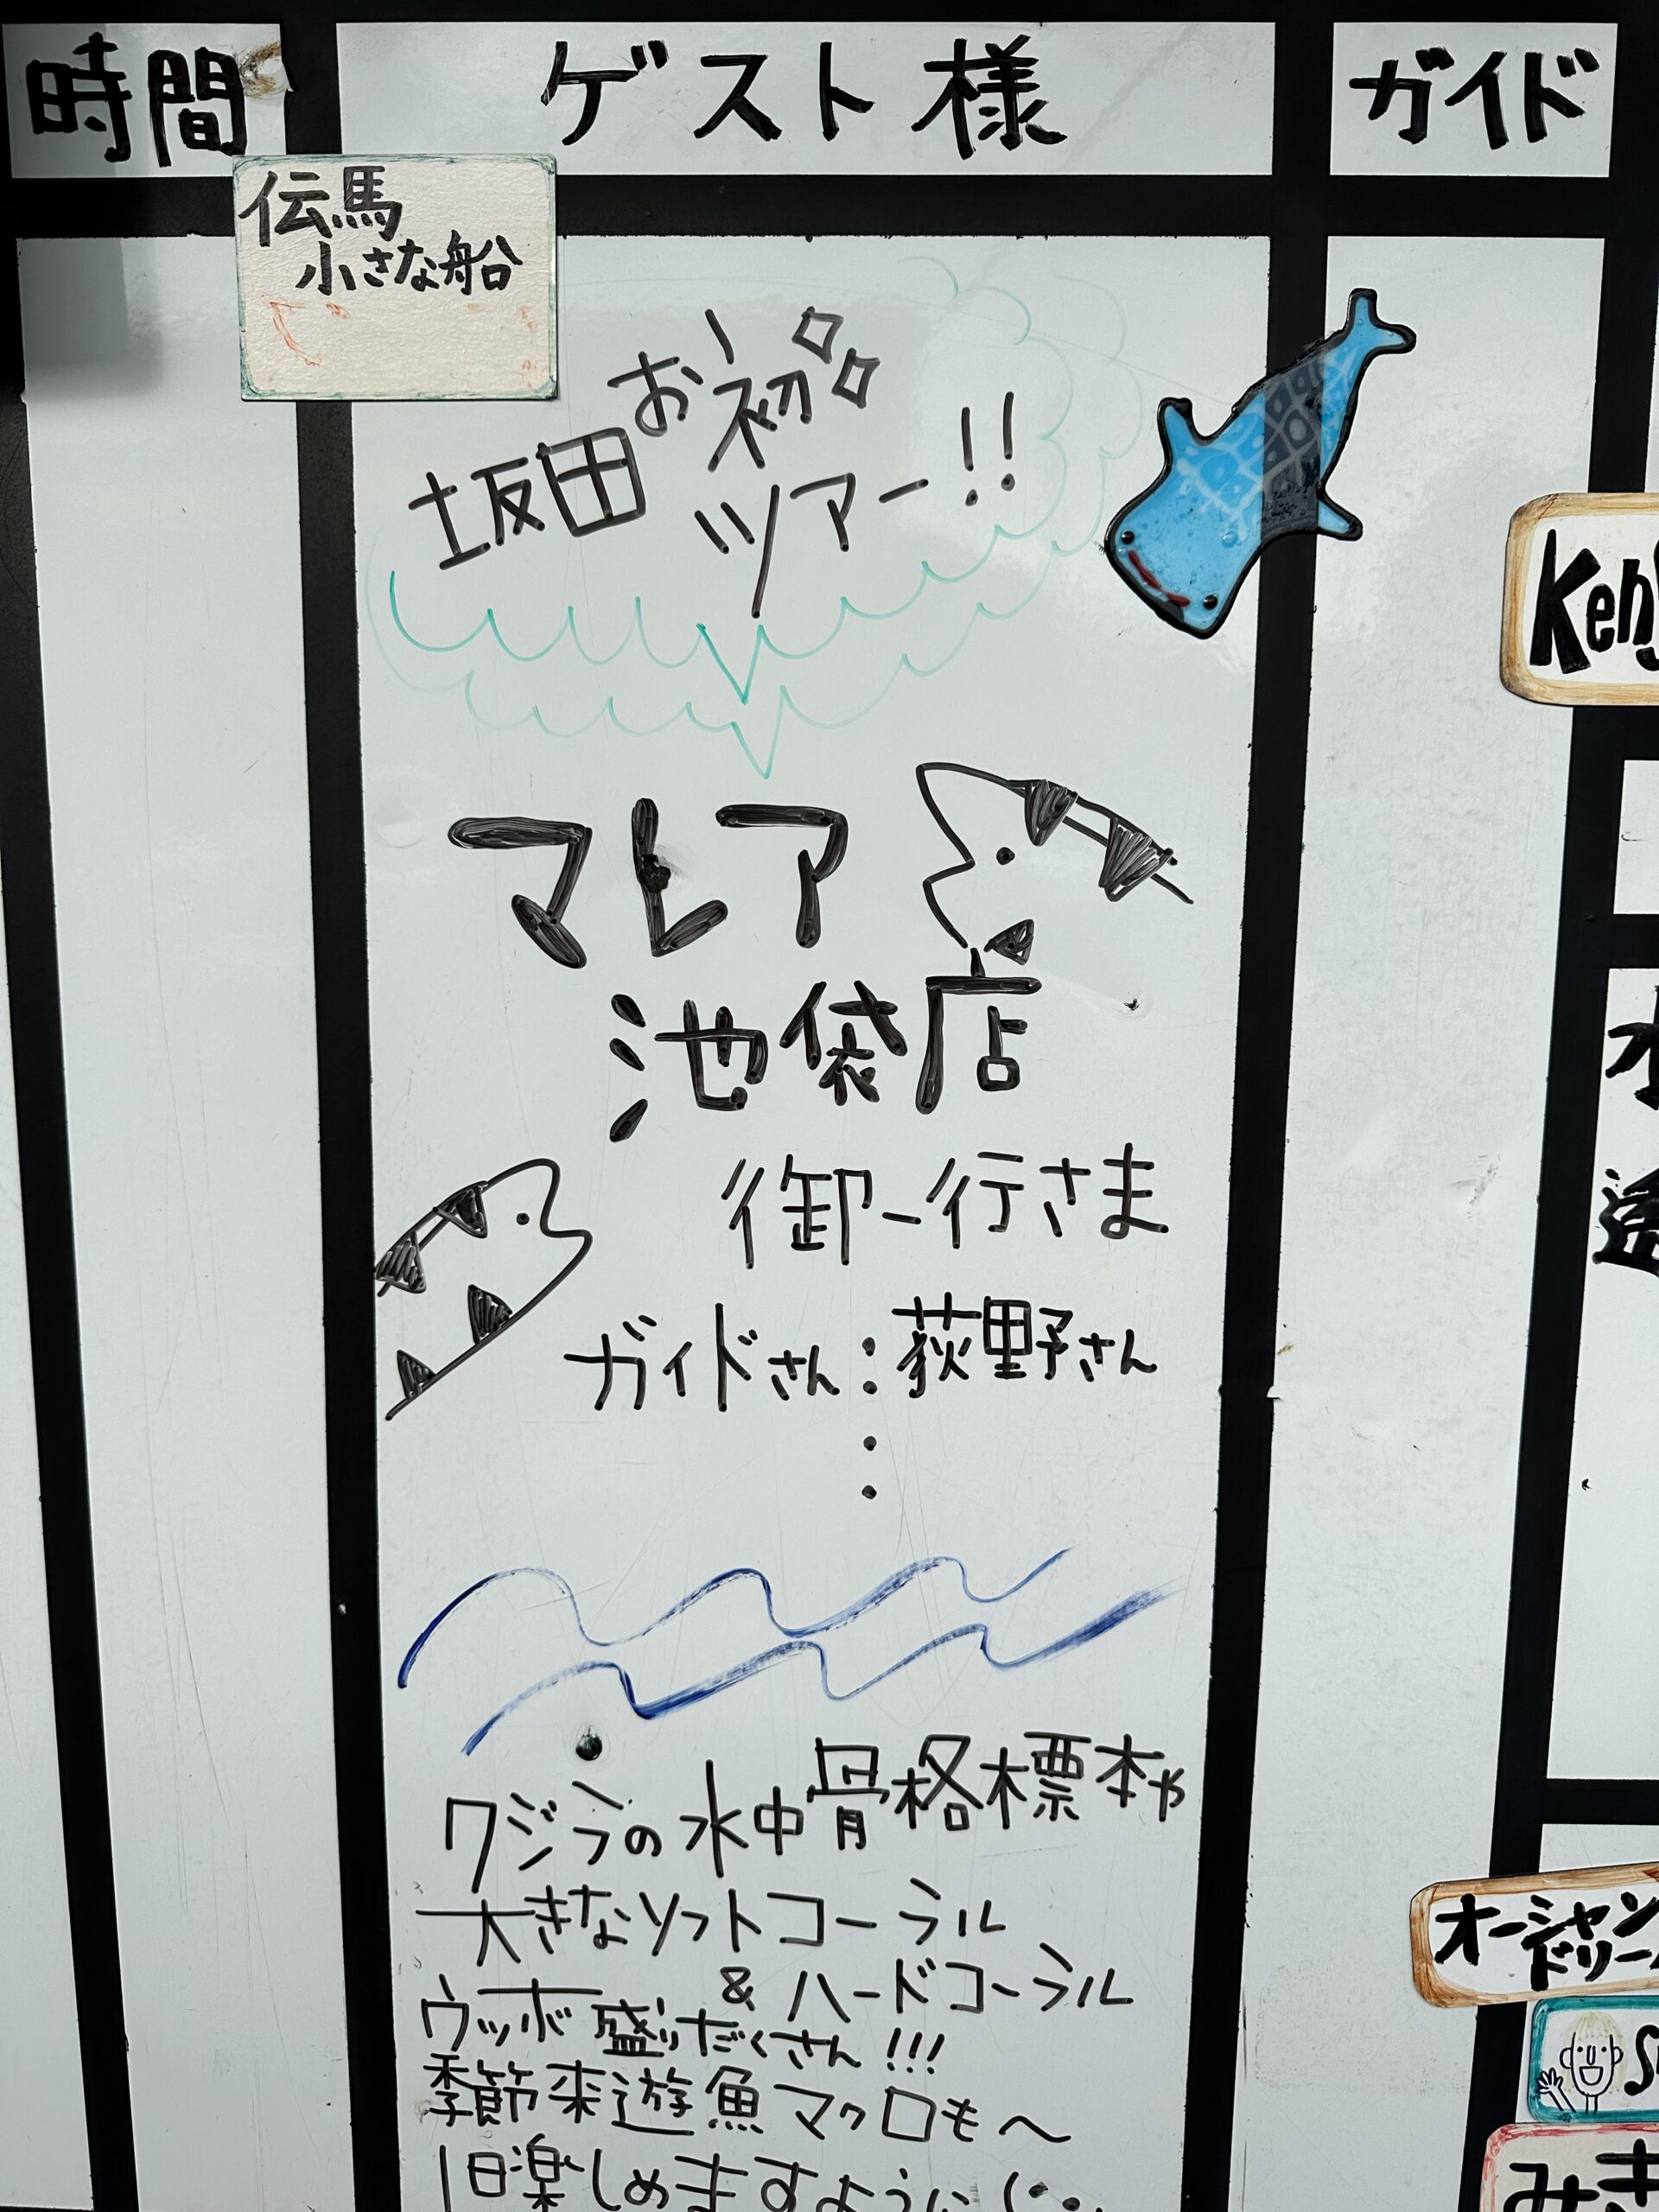 時間
ゲスト様
ガイド
伝馬
小さな船
坂田お初
ツアー!!
マレア
池袋店
御一行さま
ガイドさん:荻野さん
クジラの水中骨格標本や
大きなソフトコーラル
&ハードコーラル
ウツボ盛りだくさん!!!
季節来遊魚マクロも〜
1日楽しめますように
オーシャン
ドリー